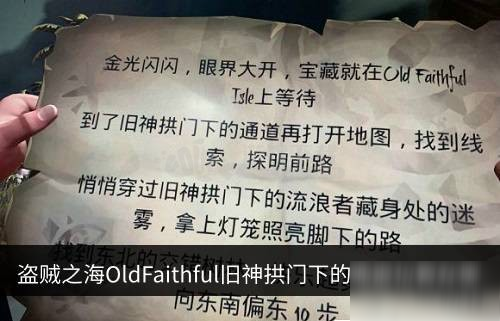 金光闪闪，眼界大开，宝藏就在Old Faithful
Isle上等待
到了旧神拱门下的通道再打开地图，找到线
索，探明前路
悄悄穿过旧神拱门下的流浪者藏身处的迷
雾，拿上灯笼照亮脚下的路
找到东北的交错树
盗贼之海OldFaithful旧神拱门下的
向东南偏东 10 步